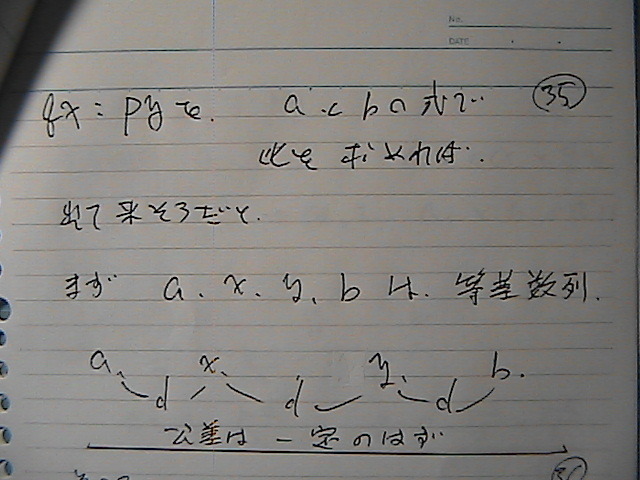 No.
DATE
qx = pyを. aとbの式で. 35
比を求めれば.
出て来そうだと.
まず a、x、y、b は、等差数列.
a、 x、 y、 b.
d d d
公差は 一定のはず